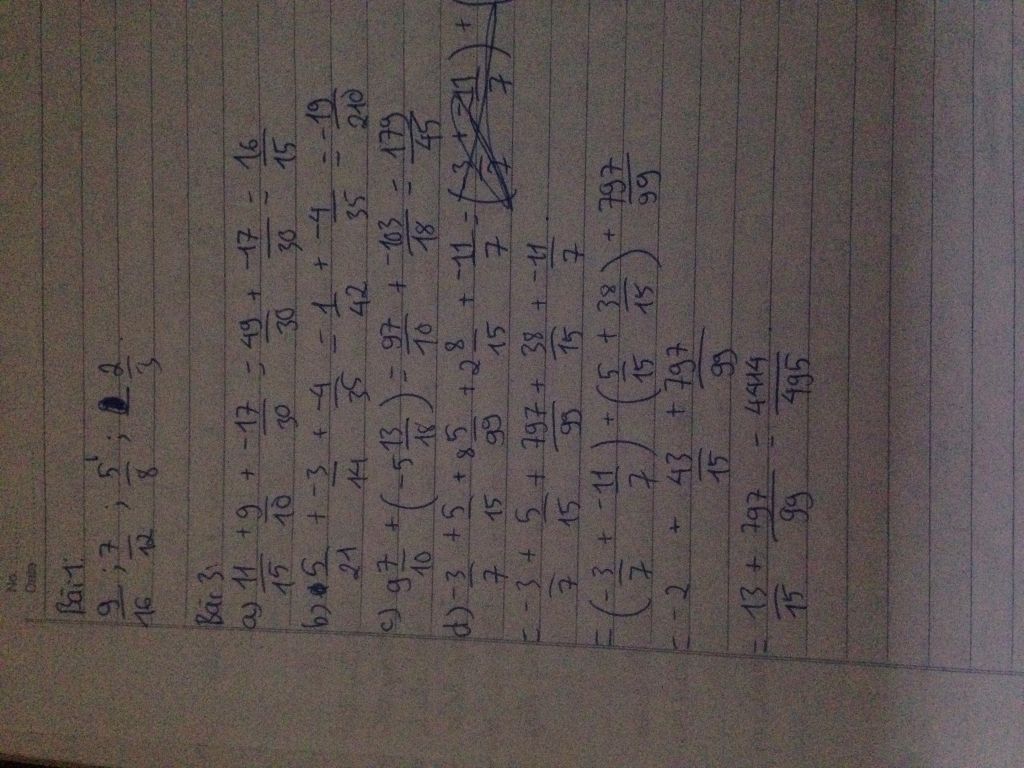 No.
Date
Bài 1.
9/16 ; 7/12 ; 5/8 ; 2/3
Bài 3.
a) 11/15 + 9/10 + -17/30 = 49/30 + -17/30 = 16/15
b) 5/21 + -3/14 + -4/35 = 1/42 + -4/35 = -19/210
c) 9 7/10 + (-5 13/18) = 97/10 + -103/18 = 179/45
d) -3/7 + 5/15 + 8 5/99 + 2 8/15 + -11/7 =
= -3/7 + 5/15 + 797/99 + 38/15 + -11/7
= (-3/7 + -11/7) + (5/15 + 38/15) + 797/99
= -2 + 43/15 + 797/99
= 13/15 + 797/99 = 4414/495